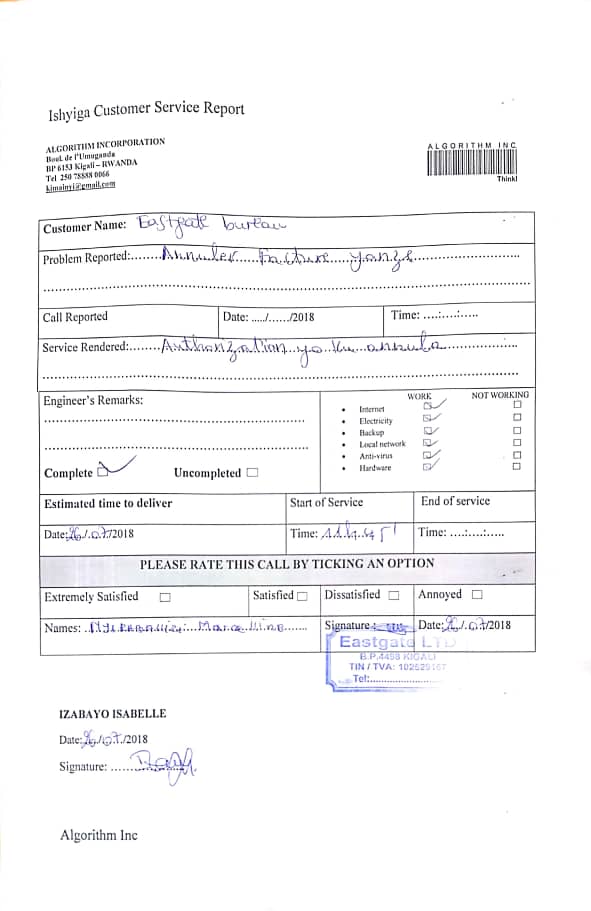 Ishyiga Customer Service Report
ALGORITHM INCORPORATION
Boul. de l'Umuganda
BP 6153 Kigali – RWANDA
Tel 250 78888 0066
kimainyi@gmail.com
ALGORITHM INC
Think!
Customer Name: Eastgate bureau
Problem Reported:........Annuler....Facture....yanze........................
Call Reported Date: ...../......./2018 Time: ....:....:.....
Service Rendered:........Authorization..yo ku..annula..................
Engineer's Remarks:
WORK NOT WORKING
• Internet
• Electricity
• Backup
• Local network
• Anti-virus
• Hardware
Complete Uncompleted
Estimated time to deliver Start of Service End of service
Date:26./.07./2018 Time: Time: ....:....:.....
PLEASE RATE THIS CALL BY TICKING AN OPTION
Extremely Satisfied Satisfied Dissatisfied Annoyed
Names: Signature: Date:26/.07/2018
Eastgate LTD
B.P.4498 KIGALI
TIN / TVA:
Tel:........................
IZABAYO ISABELLE
Date:26/.07./2018
Signature: ......
Algorithm Inc